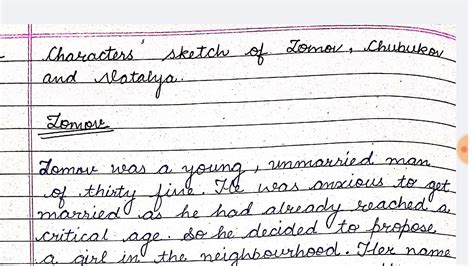 Characters' sketch of Lomov, Chubukov
and Natalya.
Lomov
Lomov was a young, unmarried man
of thirty five. He was anxious to get
married as he had already reached a
critical age. So he decided to propose
a girl in the neighbourhood. Her name